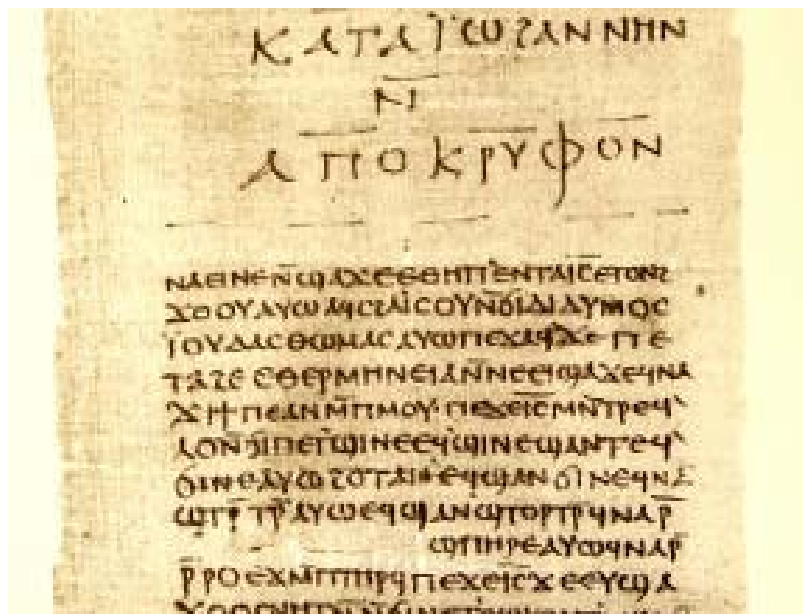 ⲕⲁⲧⲁ ⲓ̈ⲱϩⲁⲛⲛⲏⲛ
ⲛ̄
ⲁⲡⲟⲕⲣⲩⲫⲟⲛ
ⲛⲁⲉⲓⲛⲉⲛ̄ϣⲁϫⲉⲉⲑⲏⲡ`ⲉⲛⲧⲁⲓ̅ⲥ̅ⲉⲧⲟⲛϩ
ϫⲟⲟⲩⲁⲩⲱⲁϥⲥϩⲁⲓ̈ⲥⲟⲩⲛ̄ϭⲓⲇⲓⲇⲩⲙⲟⲥ
ⲓ̈ⲟⲩⲇⲁⲥⲑⲱⲙⲁⲥⲁⲩⲱⲡⲉϫⲁϥϫⲉⲡⲉ
ⲧⲁϩⲉⲉⲑⲉⲣⲙⲏⲛⲉⲓⲁⲛ̄ⲛⲉⲉⲓϣⲁϫⲉϥⲛⲁ
ϫⲓϯⲡⲉⲁⲛⲙ̄ⲡⲙⲟⲩ·ⲡⲉϫⲉⲓ̅ⲥ̅ⲙⲛ̄ⲧⲣⲉϥ`
ⲗⲟⲛ̄ϭⲓⲡⲉⲧϣⲓⲛⲉⲉϥϣⲓⲛⲉϣⲁⲛⲧⲉϥ`
ϭⲓⲛⲉⲁⲩⲱϩⲟⲧⲁⲛⲉϥϣⲁⲛϭⲓⲛⲉϥⲛⲁ
ϣⲧⲣ̄ⲧⲣ̄ⲁⲩⲱⲉϥϣⲁⲛϣⲧⲟⲣⲧⲣ̄ϥⲛⲁⲣ̄
ϣⲡⲏⲣⲉⲁⲩⲱϥⲛⲁⲣ̄
ⲣ̄ⲣⲟⲉϫⲙ̄ⲡⲧⲏⲣϥⲡⲉϫⲉⲓ̅ⲥ̅ϫⲉⲉⲩϣⲁ